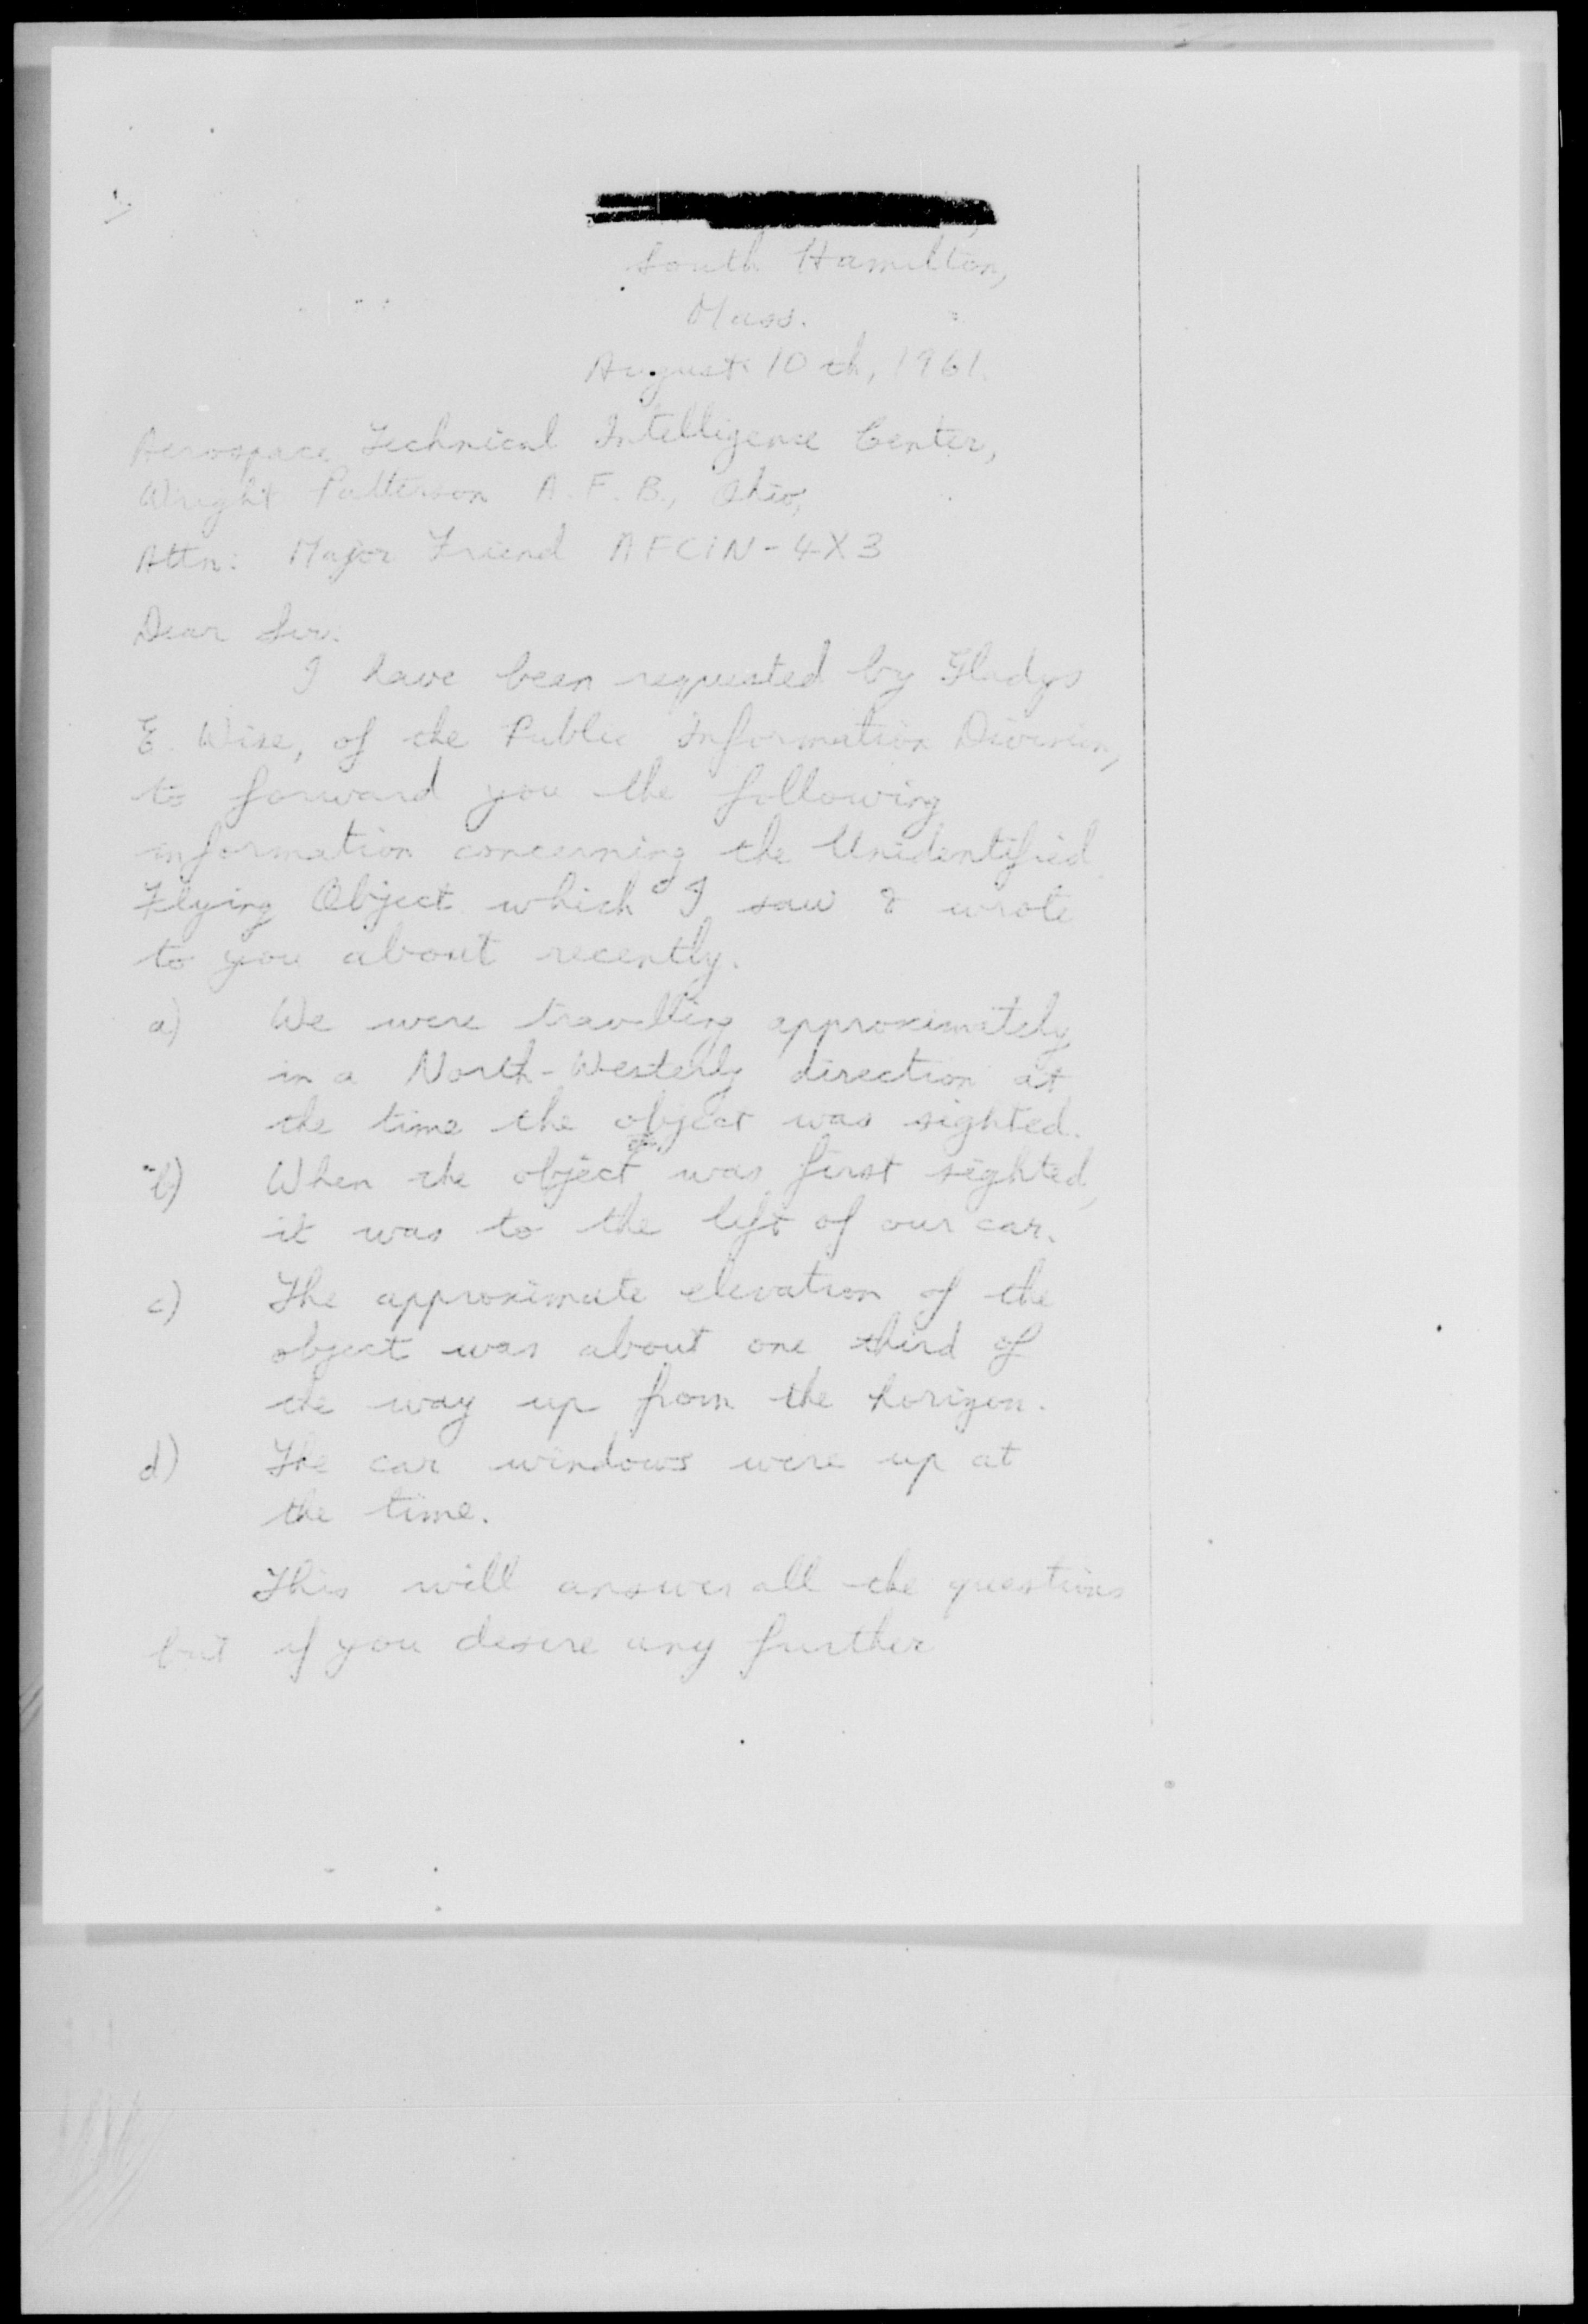 South Hamilton,
Mass.
August 10th, 1961.
Aerospace Technical Intelligence Center,
Wright Patterson A.F.B., Ohio,
Attn: Major Friend AFCIN-4X3
Dear Sir:
I have been requested by Gladys
E. Wise, of the Public Information Division,
to forward you the following
information concerning the Unidentified
Flying Object which I saw & wrote
to you about recently.
a) We were travelling approximately
in a North-Westerly direction at
the time the object was sighted.
b) When the object was first sighted,
it was to the left of our car.
c) The approximate elevation of the
object was about one third of
the way up from the horizon.
d) The car windows were up at
the time.
This will answer all the questions
but if you desire any further